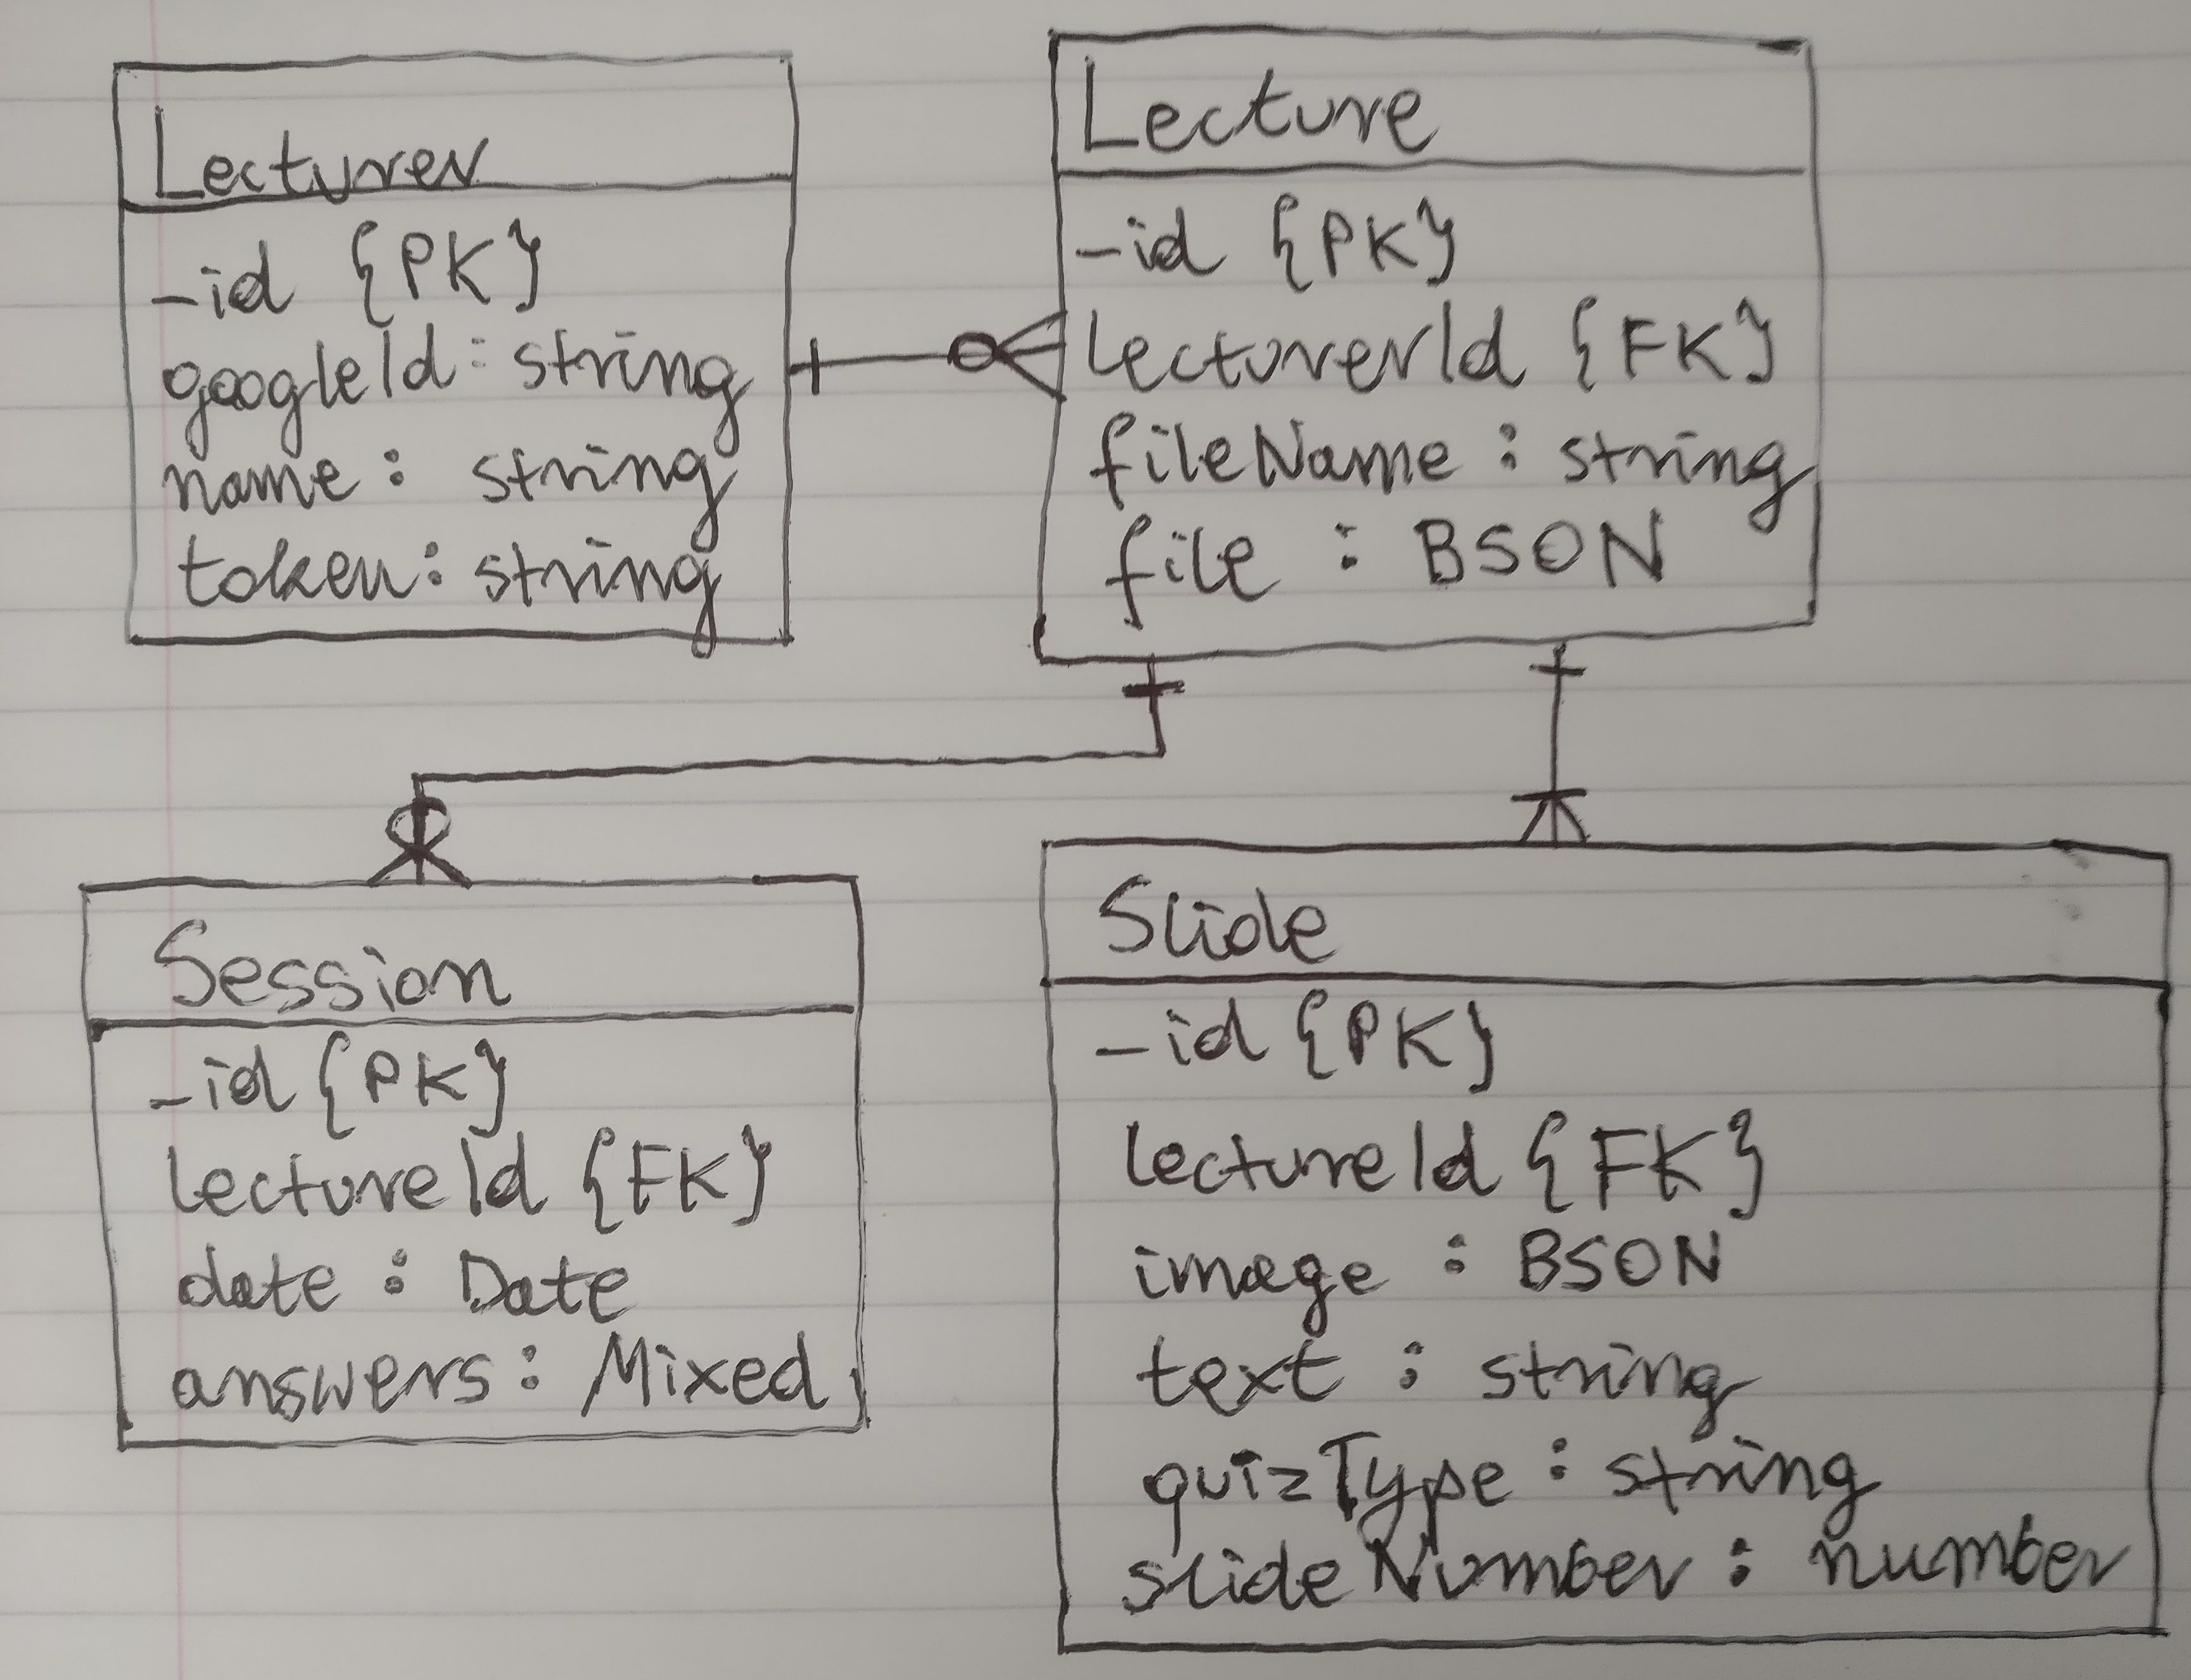 Lecturer
_id {PK}
googleId: string
name: string
token: string
Lecture
_id {PK}
lecturerId {FK}
fileName: string
file: BSON
Session
_id {PK}
lectureId {FK}
date: Date
answers: Mixed
Slide
_id {PK}
lectureId {FK}
image: BSON
text: string
quizType: string
slideNumber: number